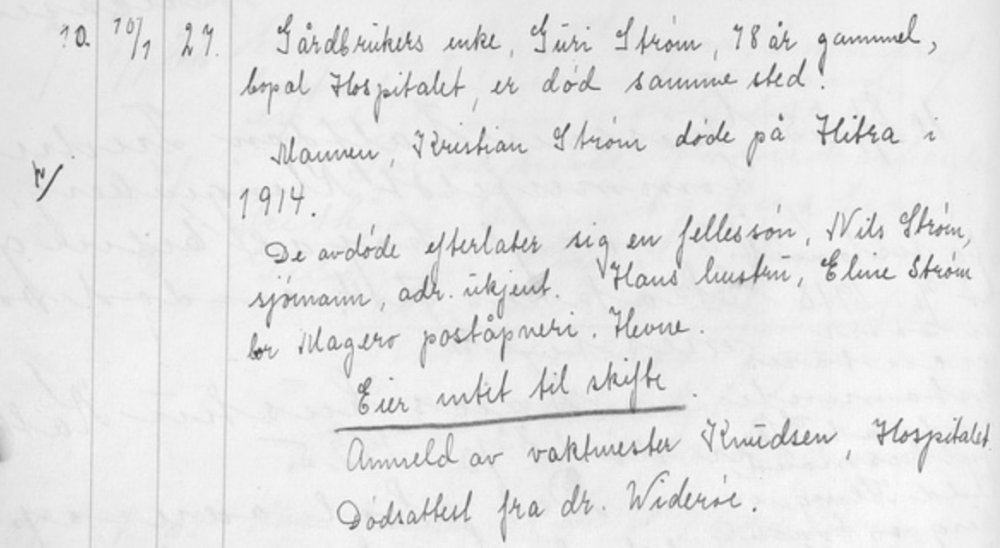 10. 10/1 27. Gårdbrukers enke, Guri Strøm, 78 år gammel,
bopal Hospitalet, er død samme sted.
Mannen, Kristian Strøm døde på Hitra i
1914.
De avdøde efterlater sig en fellessøn, Nils Strøm,
sjømann, adr. ukjent. Hans hustru, Eline Strøm
bor Magerø poståpneri. Hevne.
Eier intet til skifte.
Anmeld av vaktmester Knudsen, Hospitalet
Dødsattest fra dr. Widerøe.